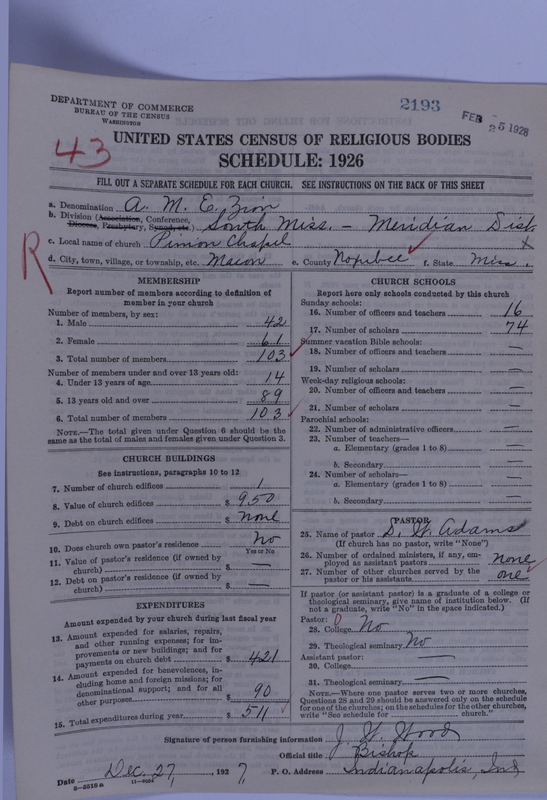 2193
FEB 25 1928
DEPARTMENT OF COMMERCE
BUREAU OF THE CENSUS
WASHINGTON
43
UNITED STATES CENSUS OF RELIGIOUS BODIES
SCHEDULE: 1926
FILL OUT A SEPARATE SCHEDULE FOR EACH CHURCH. SEE INSTRUCTIONS ON THE BACK OF THIS SHEET
a. Denomination A. M. E. Zion
b. Division (Association, Conference, Diocese, Presbytery, Synod, etc.) South Miss. - Meridian Dist
c. Local name of church Pinion Chapel X
d. City, town, village, or township, etc. Macon e. County Noxubee f. State Miss.
R
MEMBERSHIP
Report number of members according to definition of
member in your church
Number of members, by sex:
1. Male 42
2. Female 61
3. Total number of members 103
Number of members under and over 13 years old:
4. Under 13 years of age 14
5. 13 years old and over 89
6. Total number of members 103
NOTE.—The total given under Question 6 should be the
same as the total of males and females given under Question 3.
CHURCH BUILDINGS
See instructions, paragraphs 10 to 12
7. Number of church edifices 1
8. Value of church edifices $ 950
9. Debt on church edifices $ none
10. Does church own pastor's residence? No
Yes or No
11. Value of pastor's residence (if owned by
church) $ —
12. Debt on pastor's residence (if owned by
church) $ —
EXPENDITURES
Amount expended by your church during last fiscal year
13. Amount expended for salaries, repairs,
and other running expense; for im-
provements or new buildings; and for
payments on church debt $ 421
14. Amount expended for benevolences, in-
cluding home and foreign missions; for
denominational support; and for all
other purposes 90
15. Total expenditures during year $ 511
CHURCH SCHOOLS
Report here only schools conducted by this church
Sunday schools:
16. Number of officers and teachers 16
17. Number of scholars 74
Summer vacation Bible schools:
18. Number of officers and teachers —
19. Number of scholars —
Week-day religious schools:
20. Number of officers and teachers —
21. Number of scholars —
Parochial schools:
22. Number of administrative officers —
23. Number of teachers—
a. Elementary (grades 1 to 8) —
b. Secondary —
24. Number of scholars—
a. Elementary (grades 1 to 8) —
b. Secondary —
PASTOR
25. Name of pastor S. W. Adams
(If church has no pastor, write "None")
26. Number of ordained ministers, if any, em-
ployed as assistant pastors none
27. Number of other churches served by the
pastor or his assistants one
If pastor (or assistant pastor) is a graduate of a college or
theological seminary, give name of institution below. (If
not a graduate, write "No" in the space indicated.)
Pastor:
28. College No
29. Theological seminary No
Assistant pastor:
30. College —
31. Theological seminary —
NOTE.—Where one pastor serves two or more churches,
Questions 28 and 29 should be answered only on the schedule
for one of the churches; on the schedules for the other churches,
write "See schedule for church."
Signature of person furnishing information J. W. Wood
Official title Bishop
Date Dec. 27, 1927, P. O. Address Indianapolis, Ind